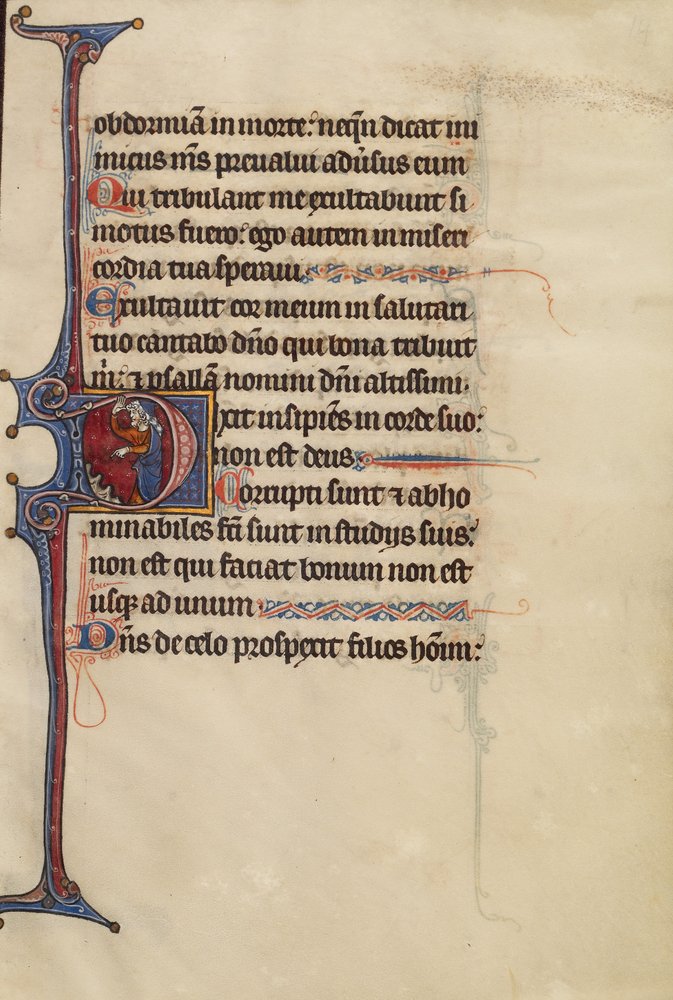 14
obdormiā in morte: neq̄n dicat ini
micus m̄s preualui adūsus eum
Qui tribulant me exultabunt si
motus fuero: ego autem in miseri
cordia tua speraui.
Exultauit cor meum in salutari
tuo cantabo dn̄o qui bona tribuit
m̄: ⁊ psallā nomini dn̄i altissimi.
Dixit insipiēs in corde suo:
non est deus.
Corrupti sunt ⁊ abho
minabiles fc̄i sunt in studijs suis:
non est qui faciat bonum non est
usq; ad unum.
Dn̄s de celo prospexit filios hōim: